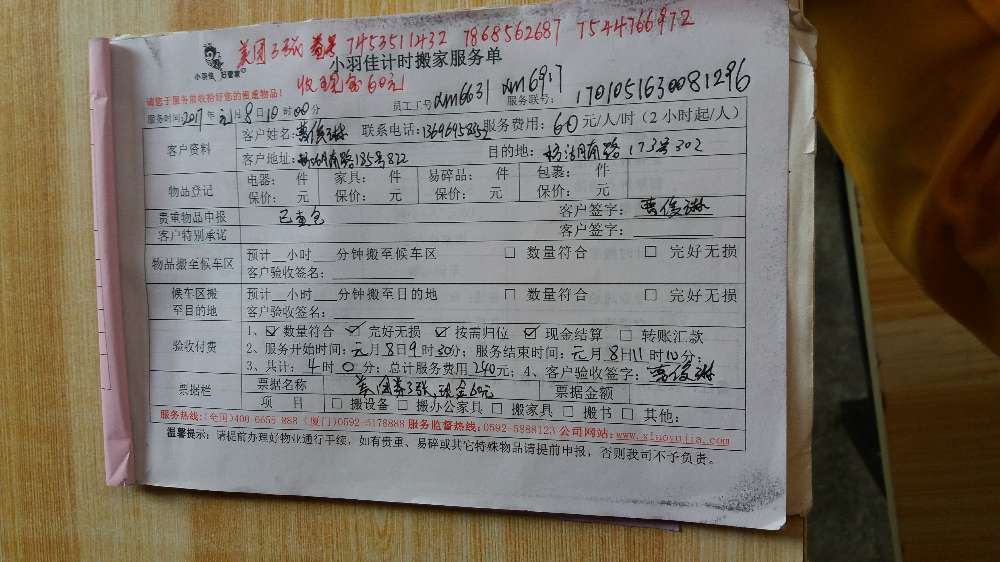 美团3张 7453511432 7868562687 7544766972
小羽佳计时搬家服务单
收现金60元
小羽佳 好管家
请您于服务前收拾好您的贵重物品!
员工工号 xm6631 xm6917 服务联号: 1701051630081296
服务时间:2017年元月8日10时00分
客户资料 客户姓名: 联系电话: 服务费用:60元/人/时(2小时起/人)
客户地址: 135号822 目的地: 173号302
物品登记 电器: 件 家具: 件 易碎品: 件 包裹: 件
保价: 元 保价: 元 保价: 元 保价: 元
贵重物品申报 已查包 客户签字:
客户特别承诺 客户签字:
物品搬至候车区 预计__小时___分钟搬至候车区 □ 数量符合 □ 完好无损
客户验收签名:
候车区搬至目的地 预计__小时___分钟搬至目的地 □ 数量符合 □ 完好无损
客户验收签名:
验收付费 1、☑ 数量符合 ☑ 完好无损 ☑ 按需归位 ☑ 现金结算 □ 转账汇款
2、服务开始时间:元月8日9时30分;服务结束时间:元月8日11时10分;
3、共计:4时0分;总计服务费用240元;4、客户验收签字:
票据栏 票据名称 美团券3张,现金60元 票据金额
项 目 □ 搬设备 □ 搬办公家具 □ 搬家具 □ 搬书 □ 其他:
服务热线:(全国)400 6655 888 (厦门)0592-5178888 服务监督热线:0592-5888123 公司网站:www.xiaoyujia.com
温馨提示:请提前办理好物业通行手续,如有贵重、易碎或其它特殊物品请提前申报,否则我司不予负责。